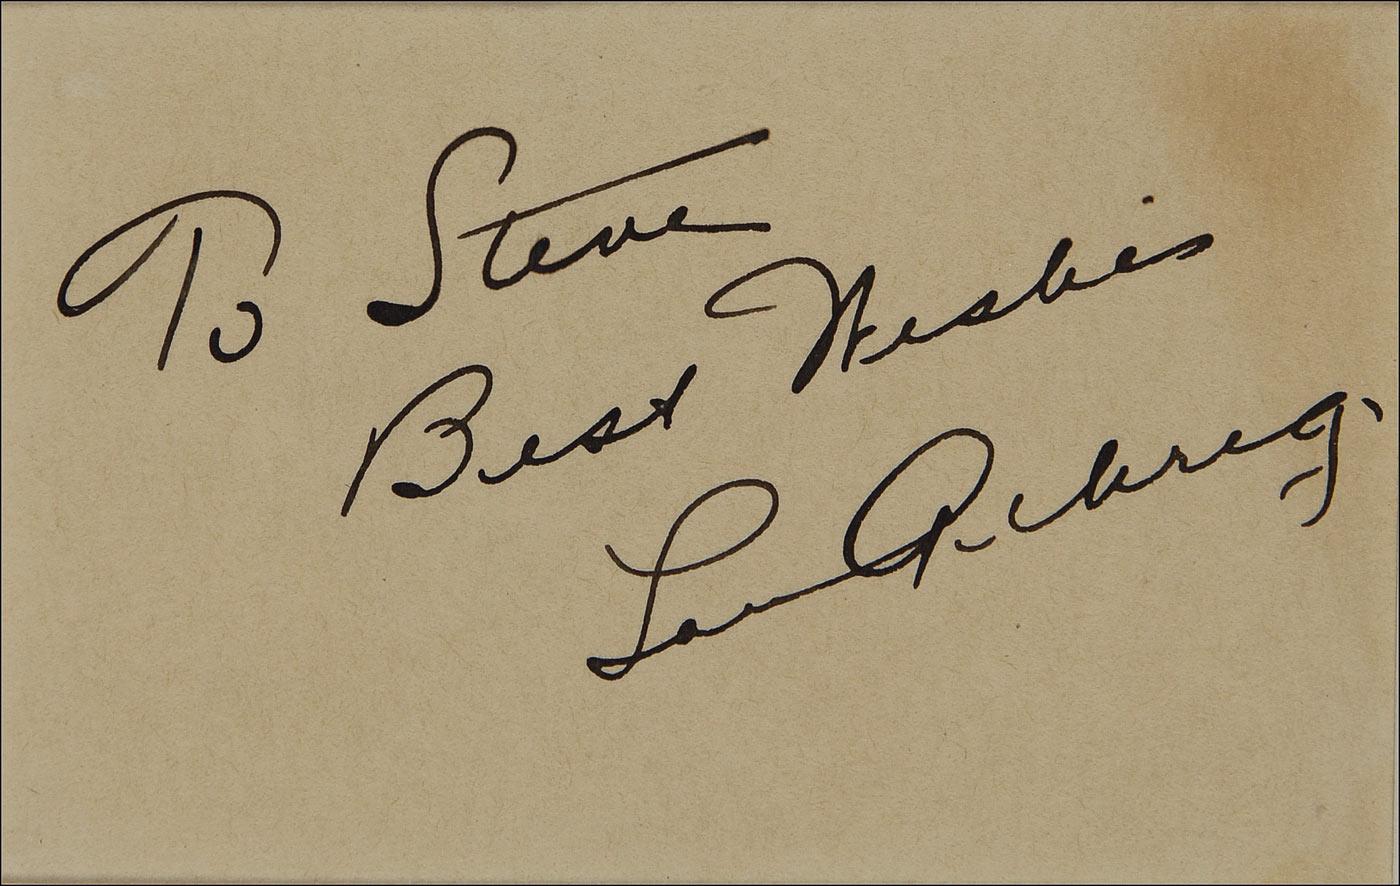 To Steve
Best Wishes
Lou Gehrig